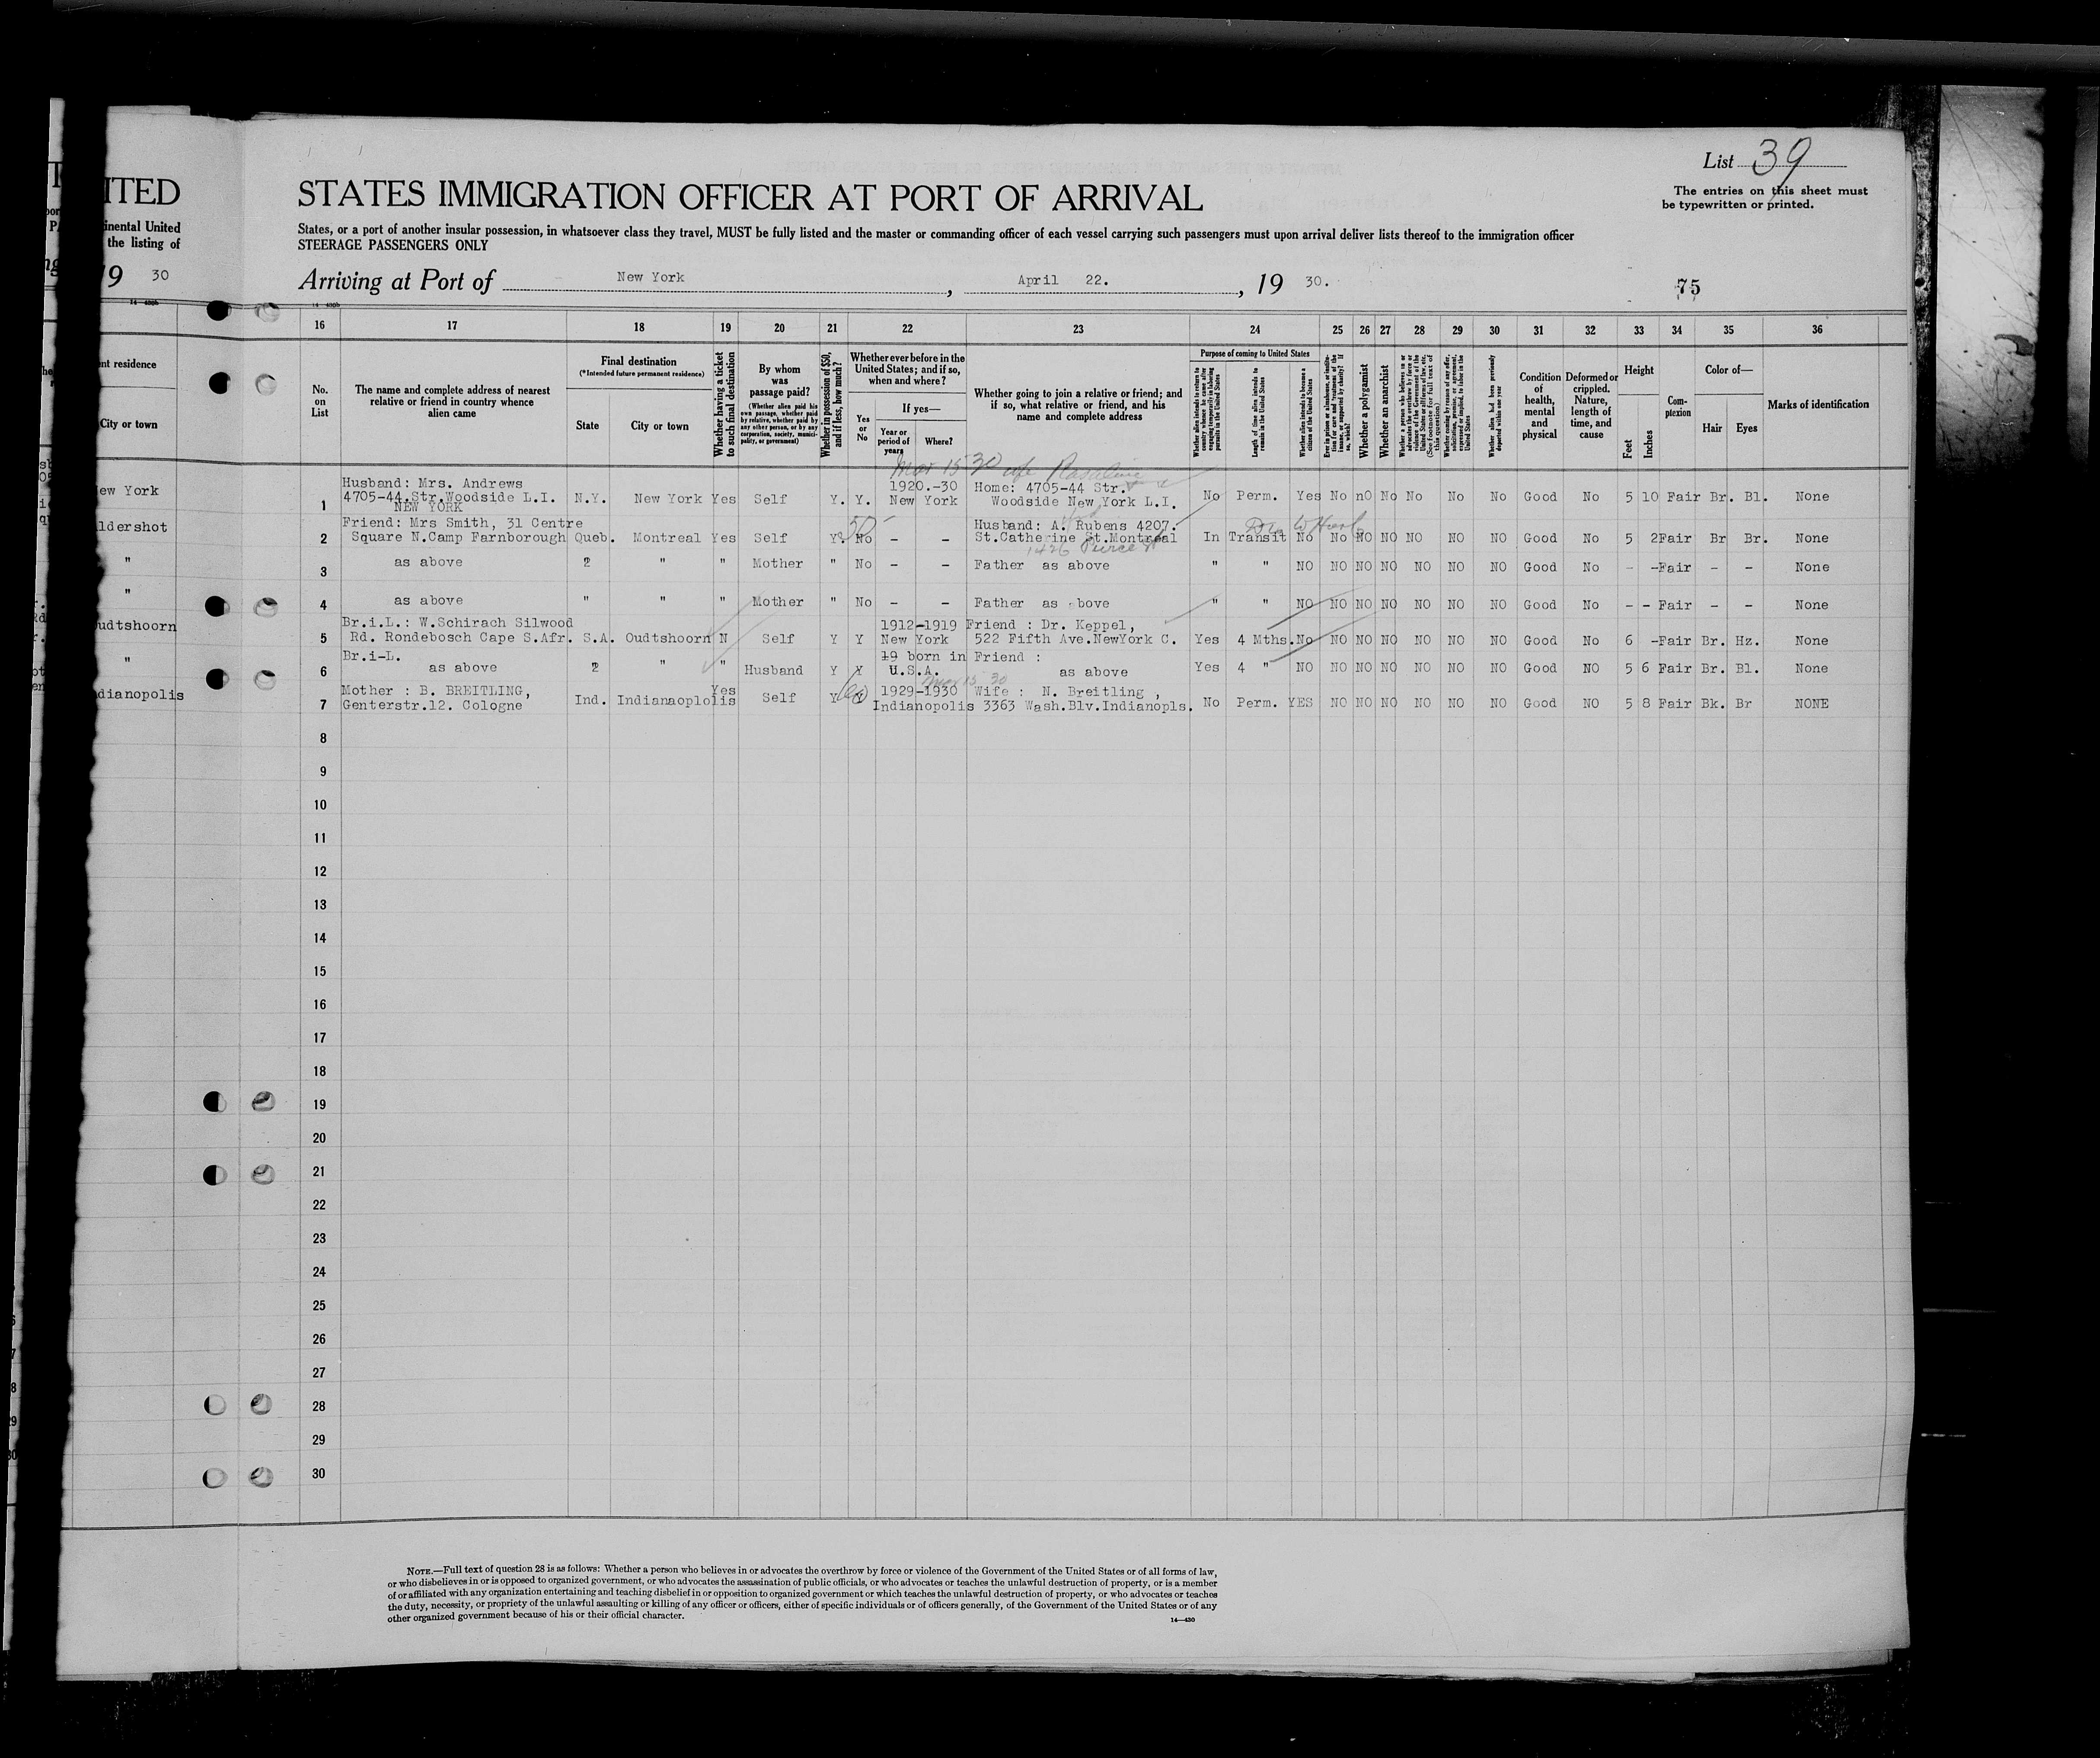 List 39
The entries on this sheet must
be typewritten or printed.
ITED
STATES IMMIGRATION OFFICER AT PORT OF ARRIVAL
inental United
the listing of
States, or a port of another insular possession, in whatsoever class they travel, MUST be fully listed and the master or commanding officer of each vessel carrying such passengers must upon arrival deliver lists thereof to the immigration officer
STEERAGE PASSENGERS ONLY
19 30
Arriving at Port of New York, April 22., 19 30.
75
16 17 18 19 20 21 22 23 24 25 26 27 28 29 30 31 32 33 34 35 36
nt residence
City or town
No. on List
The name and complete address of nearest relative or friend in country whence alien came
Final destination
(*Intended future permanent residence)
State
City or town
Whether having a ticket to such final destination
By whom was passage paid?
(Whether alien paid his own passage, whether paid by relative, whether paid by any other person, or by any corporation, society, municipality, or government)
Whether in possession of $50, and if less, how much?
Whether ever before in the United States; and if so, when and where?
Yes or No
If yes—
Year or period of years
Where?
Whether going to join a relative or friend; and if so, what relative or friend, and his name and complete address
Purpose of coming to United States
Whether alien intends to return to country whence he came after engaging temporarily in laboring pursuits in the United States
Length of time alien intends to remain in the United States
Whether alien intends to become a citizen of the United States
Ever in prison or almshouse, or institution for care and treatment of the insane, or supported by charity? If so, which?
Whether a polygamist
Whether an anarchist
Whether a person who believes in or advocates the overthrow by force or violence of the Government of the United States or all forms of law, etc. (See footnote for full text of this question)
Whether coming by reason of any offer, solicitation, promise, or agreement, expressed or implied, to labor in the United States
Whether alien had been previously deported within one year
Condition of health, mental and physical
Deformed or crippled. Nature, length of time, and cause
Height
Feet
Inches
Complexion
Color of—
Hair
Eyes
Marks of identification
Mar 15 30 wife
ew York
1 Husband: Mrs. Andrews
4705-44.Str.Woodside L.I.
NEW YORK
N.Y. New York Yes Self Y. Y. 1920.-30 New York
Home: 4705-44 Str.
Woodside New York L.I.
No Perm. Yes No nO No No No No Good No 5 10 Fair Br. Bl. None
ldershot
2 Friend: Mrs Smith, 31 Centre
Square N.Camp Farnborough
Queb. Montreal Yes Self Y. 50 No - -
Husband: A. Rubens 4207.
St.Catherine St.Montreal
1426 Pierce St
In Transit No No NO NO NO NO NO Good No 5 2 Fair Br Br. None
" 3 as above 2 " " Mother " No - - Father as above " " NO NO NO NO NO NO NO Good No - - Fair - - None
" 4 as above " " " Mother " No - - Father as above " " NO NO NO NO NO NO NO Good No - - Fair - - None
udtshoorn
5 Br.i.L.: W.Schirach Silwood
Rd. Rondebosch Cape S.Afr.
S.A. Oudtshoorn N Self Y Y 1912-1919 New York
Friend : Dr. Keppel,
522 Fifth Ave.NewYork C.
Yes 4 Mths. No NO NO NO NO NO NO Good No 6 - Fair Br. Hz. None
" 6 Br.i-L.
as above 2 " " Husband Y Y 19 born in U.S.A.
Friend :
as above
Yes 4 " NO NO NO NO NO NO NO Good NO 5 6 Fair Br. Bl. None
Mar 15 30
dianopolis
7 Mother : B. BREITLING,
Genterstr.12. Cologne
Ind. Indianaoplolis Yes Self Y 1929-1930 Indianopolis
Wife : N. Breitling ,
3363 Wash.Blv.Indianopls.
No Perm. YES NO NO NO NO NO NO Good NO 5 8 Fair Bk. Br NONE
8
9
10
11
12
13
14
15
16
17
18
19
20
21
22
23
24
25
26
27
28
29
30
NOTE.—Full text of question 28 is as follows: Whether a person who believes in or advocates the overthrow by force or violence of the Government of the United States or of all forms of law,
or who disbelieves in or is opposed to organized government, or who advocates the assassination of public officials, or who advocates or teaches the unlawful destruction of property, or is a member
of or affiliated with any organization entertaining and teaching disbelief in or opposition to organized government or which teaches the unlawful destruction of property, or who advocates or teaches
the duty, necessity, or propriety of the unlawful assaulting or killing of any officer or officers, either of specific individuals or of officers generally, of the Government of the United States or of any
other organized government because of his or their official character.
14—430